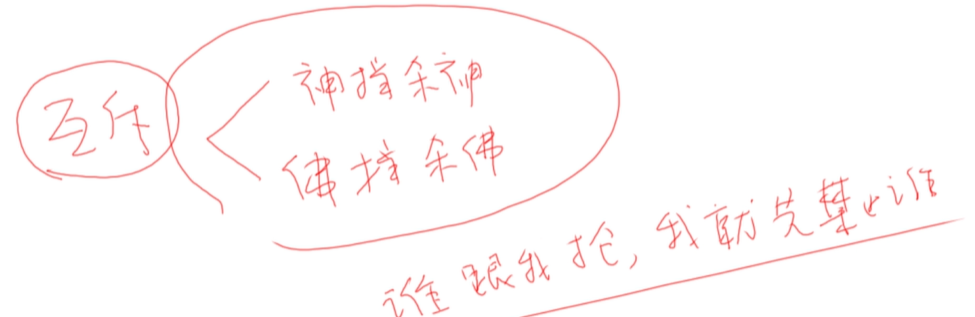 互斥
神挡杀神
佛挡杀佛
谁跟我抢,我就先禁止谁